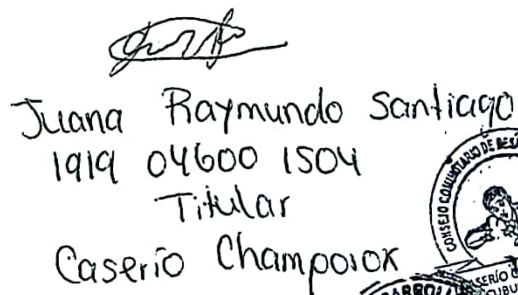 Juana Raymundo Santiago
1919 04600 1504
Titular
Caserio
CONSEJO COMUNITARIO DE